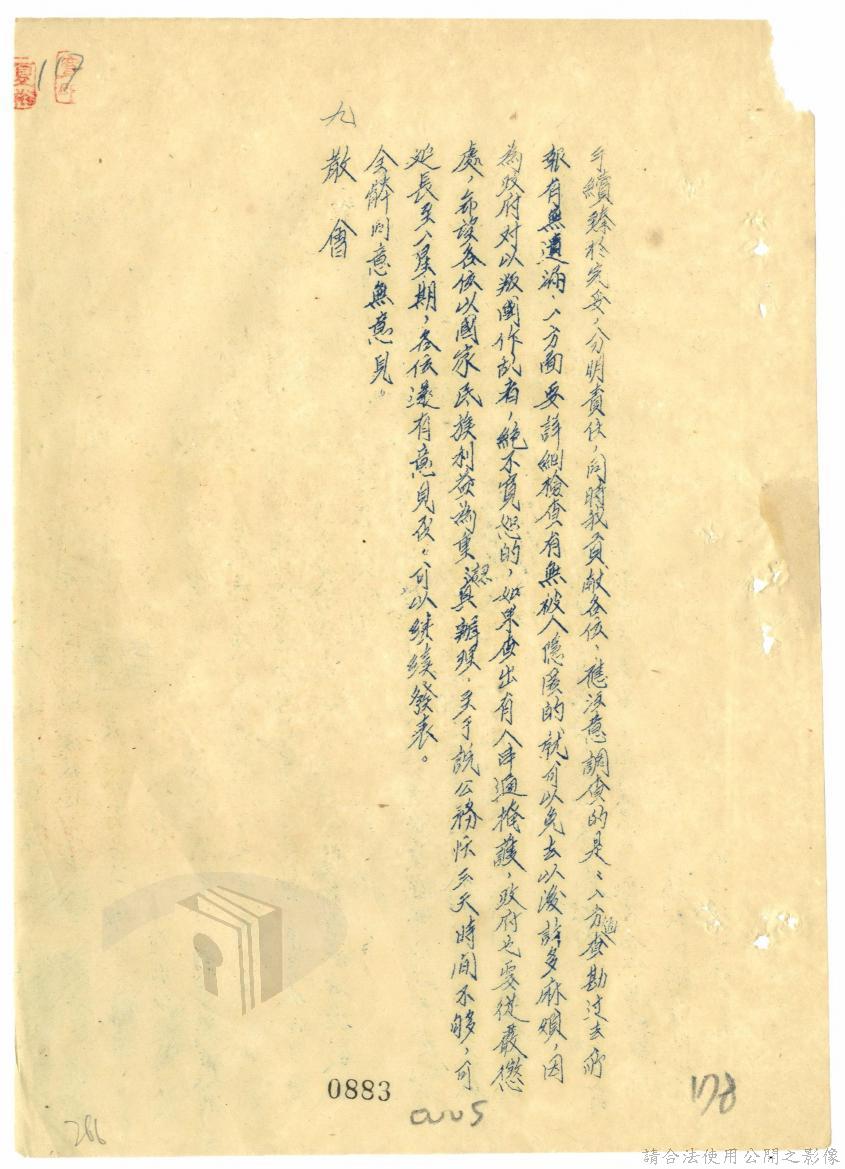 手續臻於完妥，分明責任，同時我貢献各位，應注意調查的是：一方面查勘过去所
報有無遺漏，一方面要詳細檢查有無被人隱匿的，就可以免去以後許多麻煩，因
為政府对以叛國作乱者，絕不寬恕的，如果查出有人串通掩護，政府也要從嚴懲
處，希望各位以國家民族利益為重認真辦理，至于說公務忙三天時間不够，可
延長至一星期，各位還有意見否，可以继续發表。
全體同意無意見。
九 散會
0883
178
266
請合法使用公開之影像